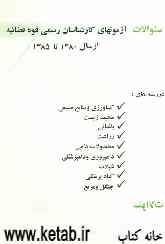 سوالات آزمونهای کارشناسان رسمی قوه قضائیه
از سال ۱۳۸۰ تا ۱۳۸۵
در رشته های :
کشاورزی و منابع طبیعی
محیط زیست
باغبانی
زراعت
محصولات دامی
دامپروری و دامپزشکی
شیلات
گیاه پزشکی
جنگل و مرتع
www.ketab.ir
خانه کتاب